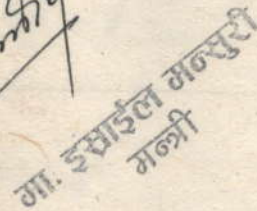 मा. इस्राईल मन्सुरी
मन्त्री